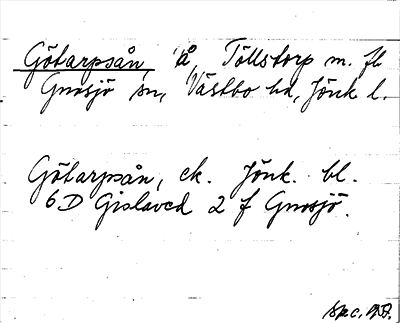 Götarpsån, å, Töllstorp m. fl.
Gnosjö sn, Västbo hd, Jönk l.
Götarpsån, ek. Jönk. bl.
6D Gislaved 2 f Gnosjö.